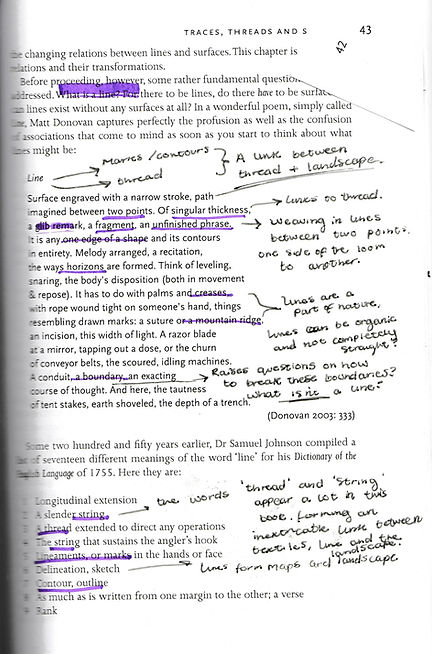 TRACES, THREADS AND S 43
42
changing relations between lines and surfaces. This chapter is
relations and their transformations.
Before proceeding, however, some rather fundamental
addressed. What is a line? For there to be lines, do there have to be
lines exist without any surfaces at all? In a wonderful poem, simply called
Matt Donovan captures perfectly the profusion as well as the confusion
associations that come to mind as soon as you start to think about what
might be:
Marks/contours } A link between
Line thread thread + landscape.
Surface engraved with a narrow stroke, path
links to thread.
imagined between two points. Of singular thickness,
a glib remark, a fragment, an unfinished phrase.
Weaving in lines
between two points.
one side of the loom
to another.
It is any one edge of a shape and its contours
in entirety. Melody arranged, a recitation,
the ways horizons are formed. Think of leveling,
snaring, the body's disposition (both in movement
& repose). It has to do with palms and creases,
with rope wound tight on someone's hand, things
resembling drawn marks: a suture or a mountain ridge,
lines are a
part of nature.
lines can be organic
and not completely
straight?
an incision, this width of light. A razor blade
at a mirror, tapping out a dose, or the churn
of conveyor belts, the scoured, idling machines.
A conduit, a boundary, an exacting
Raises questions on how
to break these boundaries?
what isn't a line?
course of thought. And here, the tautness
of tent stakes, earth shoveled, the depth of a trench.
(Donovan 2003: 333)
Some two hundred and fifty years earlier, Dr Samuel Johnson compiled a
of seventeen different meanings of the word 'line' for his Dictionary of the
English Language of 1755. Here they are:
Longitudinal extension
2 A slender string
3 A thread extended to direct any operations
4 The string that sustains the angler's hook
the words 'thread' and 'string'
appear a lot in this
book. Forming an
inextricable link between
textiles, line and the
landscape.
Lineaments, or marks in the hands or face
Delineation, sketch
lines form maps and landscape.
7 Contour, outline
8 As much as is written from one margin to the other; a verse
9 Rank